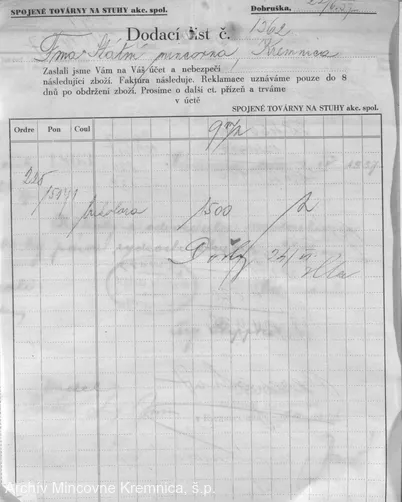 SPOJENÉ TOVÁRNY NA STUHY akc. spol.
Dobruška,
Dodací list č. 1362
Fma Státní mincovna, Kremnica
Zaslali jsme Vám na Váš účet a nebezpečí
následující zboží. Faktúra následuje. Reklamace uznáváme pouze do 8
dnů po obdržení zboží. Prosíme o další ct. přízeň a trváme
v úctě
SPOJENÉ TOVÁRNY NA STUHY akc. spol.
Ordre Pon Coul
1500
Archív Mincovne Kremnica, š.p.